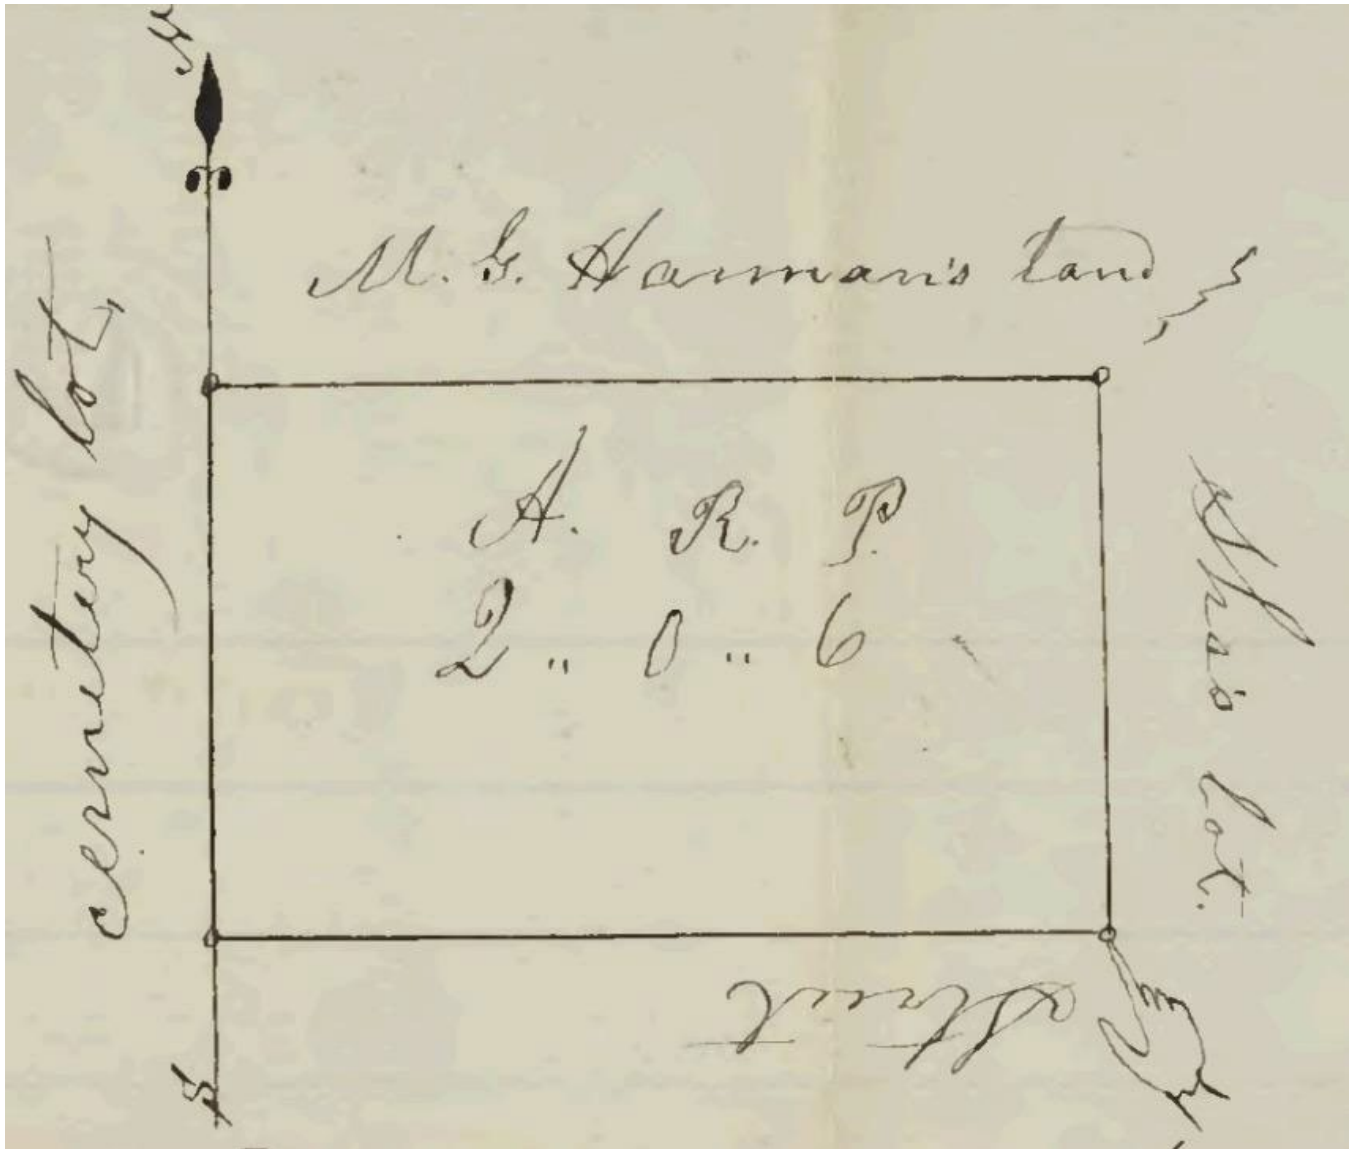 N
M. G. Harman's land
Cemetery lot,
A. R. P.
2 " 0 " 6
lot.
Street
S